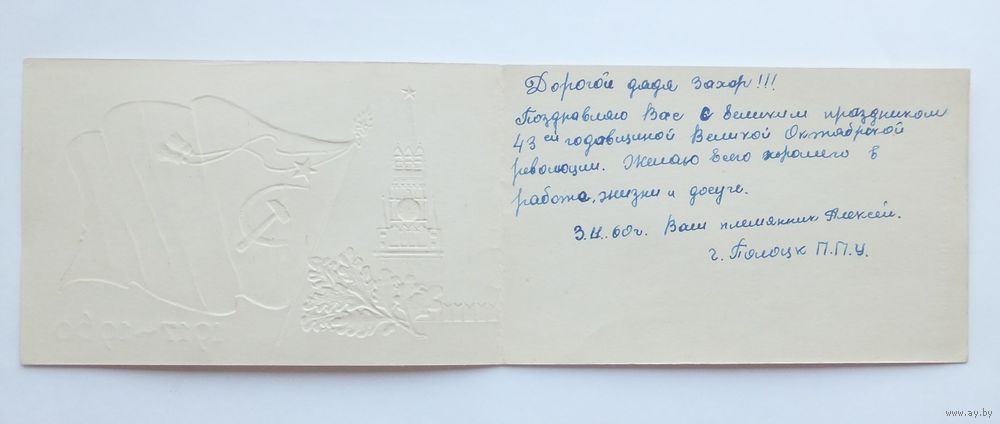 Дорогой дядя Захор!!!
Поздравляю Вас с Великим праздником
43ей годовщиной Великой Октябрьской
революции. Желаю всего хорошего в
работе, жизни и досуге.
3.XI.60г. Ваш племянник Алексей.
г. Полоцк П.П.У.
1917-1960
www.ay.by